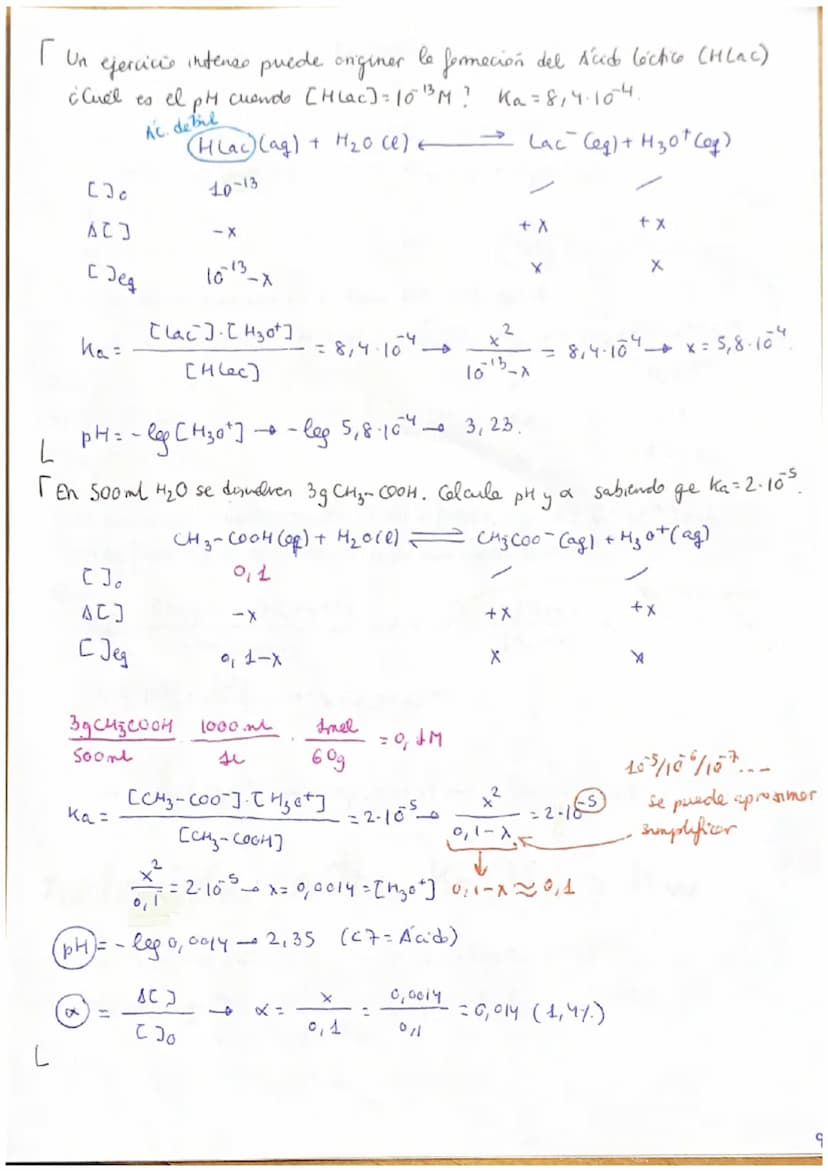 Un ejercicio intenso puede originar la formación del Ácido láctico (HLac)
¿Cuál es el pH cuando [HLac]=10⁻¹³M? Ka=8,4·10⁻⁴.
Ác. débil
HLac (aq) + H₂O (l) ⇄ Lac⁻ (aq) + H₃O⁺ (aq)
[ ]₀ 10⁻¹³ / /
Δ[ ] -x +x +x
[ ]eq 10⁻¹³-x x x
Ka = [Lac⁻]·[H₃O⁺] / [HLac] = 8,4·10⁻⁴ → x² / 10⁻¹³-x = 8,4·10⁻⁴ → x = 5,8·10⁻⁴.
pH = -log [H₃O⁺] → -log 5,8·10⁻⁴ → 3,23.
En 500ml H₂O se disuelven 3g CH₃-COOH. Calcula pH y α sabiendo qe Ka=2·10⁻⁵.
CH₃-COOH (aq) + H₂O (l) ⇄ CH₃COO⁻ (aq) + H₃O⁺ (aq)
[ ]₀ 0,1 / /
Δ[ ] -x +x +x
[ ]eq 0,1-x x x
3g CH₃COOH / 500ml · 1000ml / 1L · 1mol / 60g = 0,1M
10⁻⁵/10⁻⁶/10⁻⁷...
se puede aproximar
simplificar
Ka = [CH₃-COO⁻]·[H₃O⁺] / [CH₃-COOH] = 2·10⁻⁵ → x² / 0,1-x = 2·10⁻⁵
x² / 0,1 = 2·10⁻⁵ → x = 0,0014 = [H₃O⁺] 0,1-x ≈ 0,1
pH = -log 0,0014 → 2,35 (<7 = Ácido)
α = Δ[ ] / [ ]₀ → α = x / 0,1 = 0,0014 / 0,1 = 0,014 (1,4%)
9